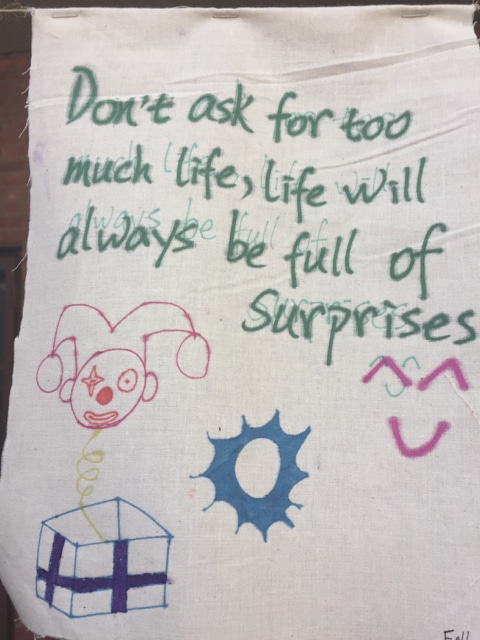 Don't ask for too
much life, life will
always be full of
Surprises